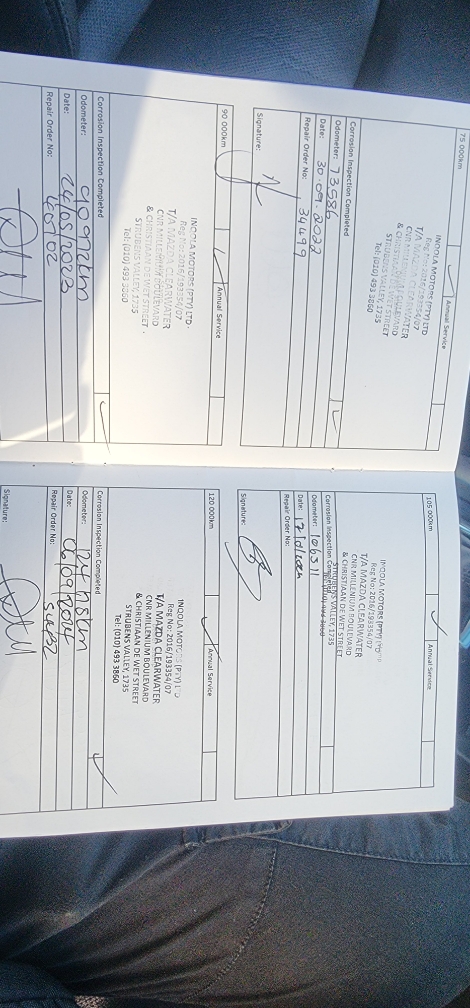 75 000km
Annual Service
INQOLA MOTORS (PTY) LTD
Reg No: 2016/193354/07
T/A MAZDA CLEARWATER
CNR MILLENIUM BOULEVARD
& CHRISTIAAN DE WET STREET
STRUBENS VALLEY, 1735
Tel: (010) 493 3860
Corrosion Inspection Completed
Odometer: 73586
Date: 30.09.2022
Repair Order No: 34499
Signature:
90 000km
Annual Service
INQOLA MOTORS (PTY) LTD
Reg No: 2016/193354/07
T/A MAZDA CLEARWATER
CNR MILLENIUM BOULEVARD
& CHRISTIAAN DE WET STREET
STRUBENS VALLEY, 1735
Tel: (010) 493 3860
Corrosion Inspection Completed
Odometer:
Date: /05/2023
Repair Order No:
105 000km
Annual Service
INQOLA MOTORS (PTY) LTD
Reg No: 2016/193354/07
T/A MAZDA CLEARWATER
CNR MILLENIUM BOULEVARD
& CHRISTIAAN DE WET STREET
STRUBENS VALLEY, 1735
Corrosion Inspection
Odometer: 106311
Date:
Repair Order No:
Signature:
120 000km
Annual Service
INQOLA MOTORS (PTY) LTD
Reg No: 2016/193354/07
T/A MAZDA CLEARWATER
CNR MILLENIUM BOULEVARD
& CHRISTIAAN DE WET STREET
STRUBENS VALLEY, 1735
Tel: (010) 493 3860
Corrosion Inspection Completed
Odometer:
Date: 06/09/2024
Repair Order No:
Signature: